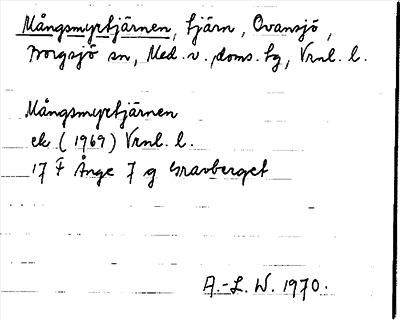 Mångsmyrtjärnen, tjärn, Ovansjö,
Borgsjö sn, Med. v. doms. tg, Vrnl. l.
Mångsmyrtjärnen
ek (1969) Vrnl. l.
17 F Ånge 7 g Gravberget
A.-L. W. 1970.